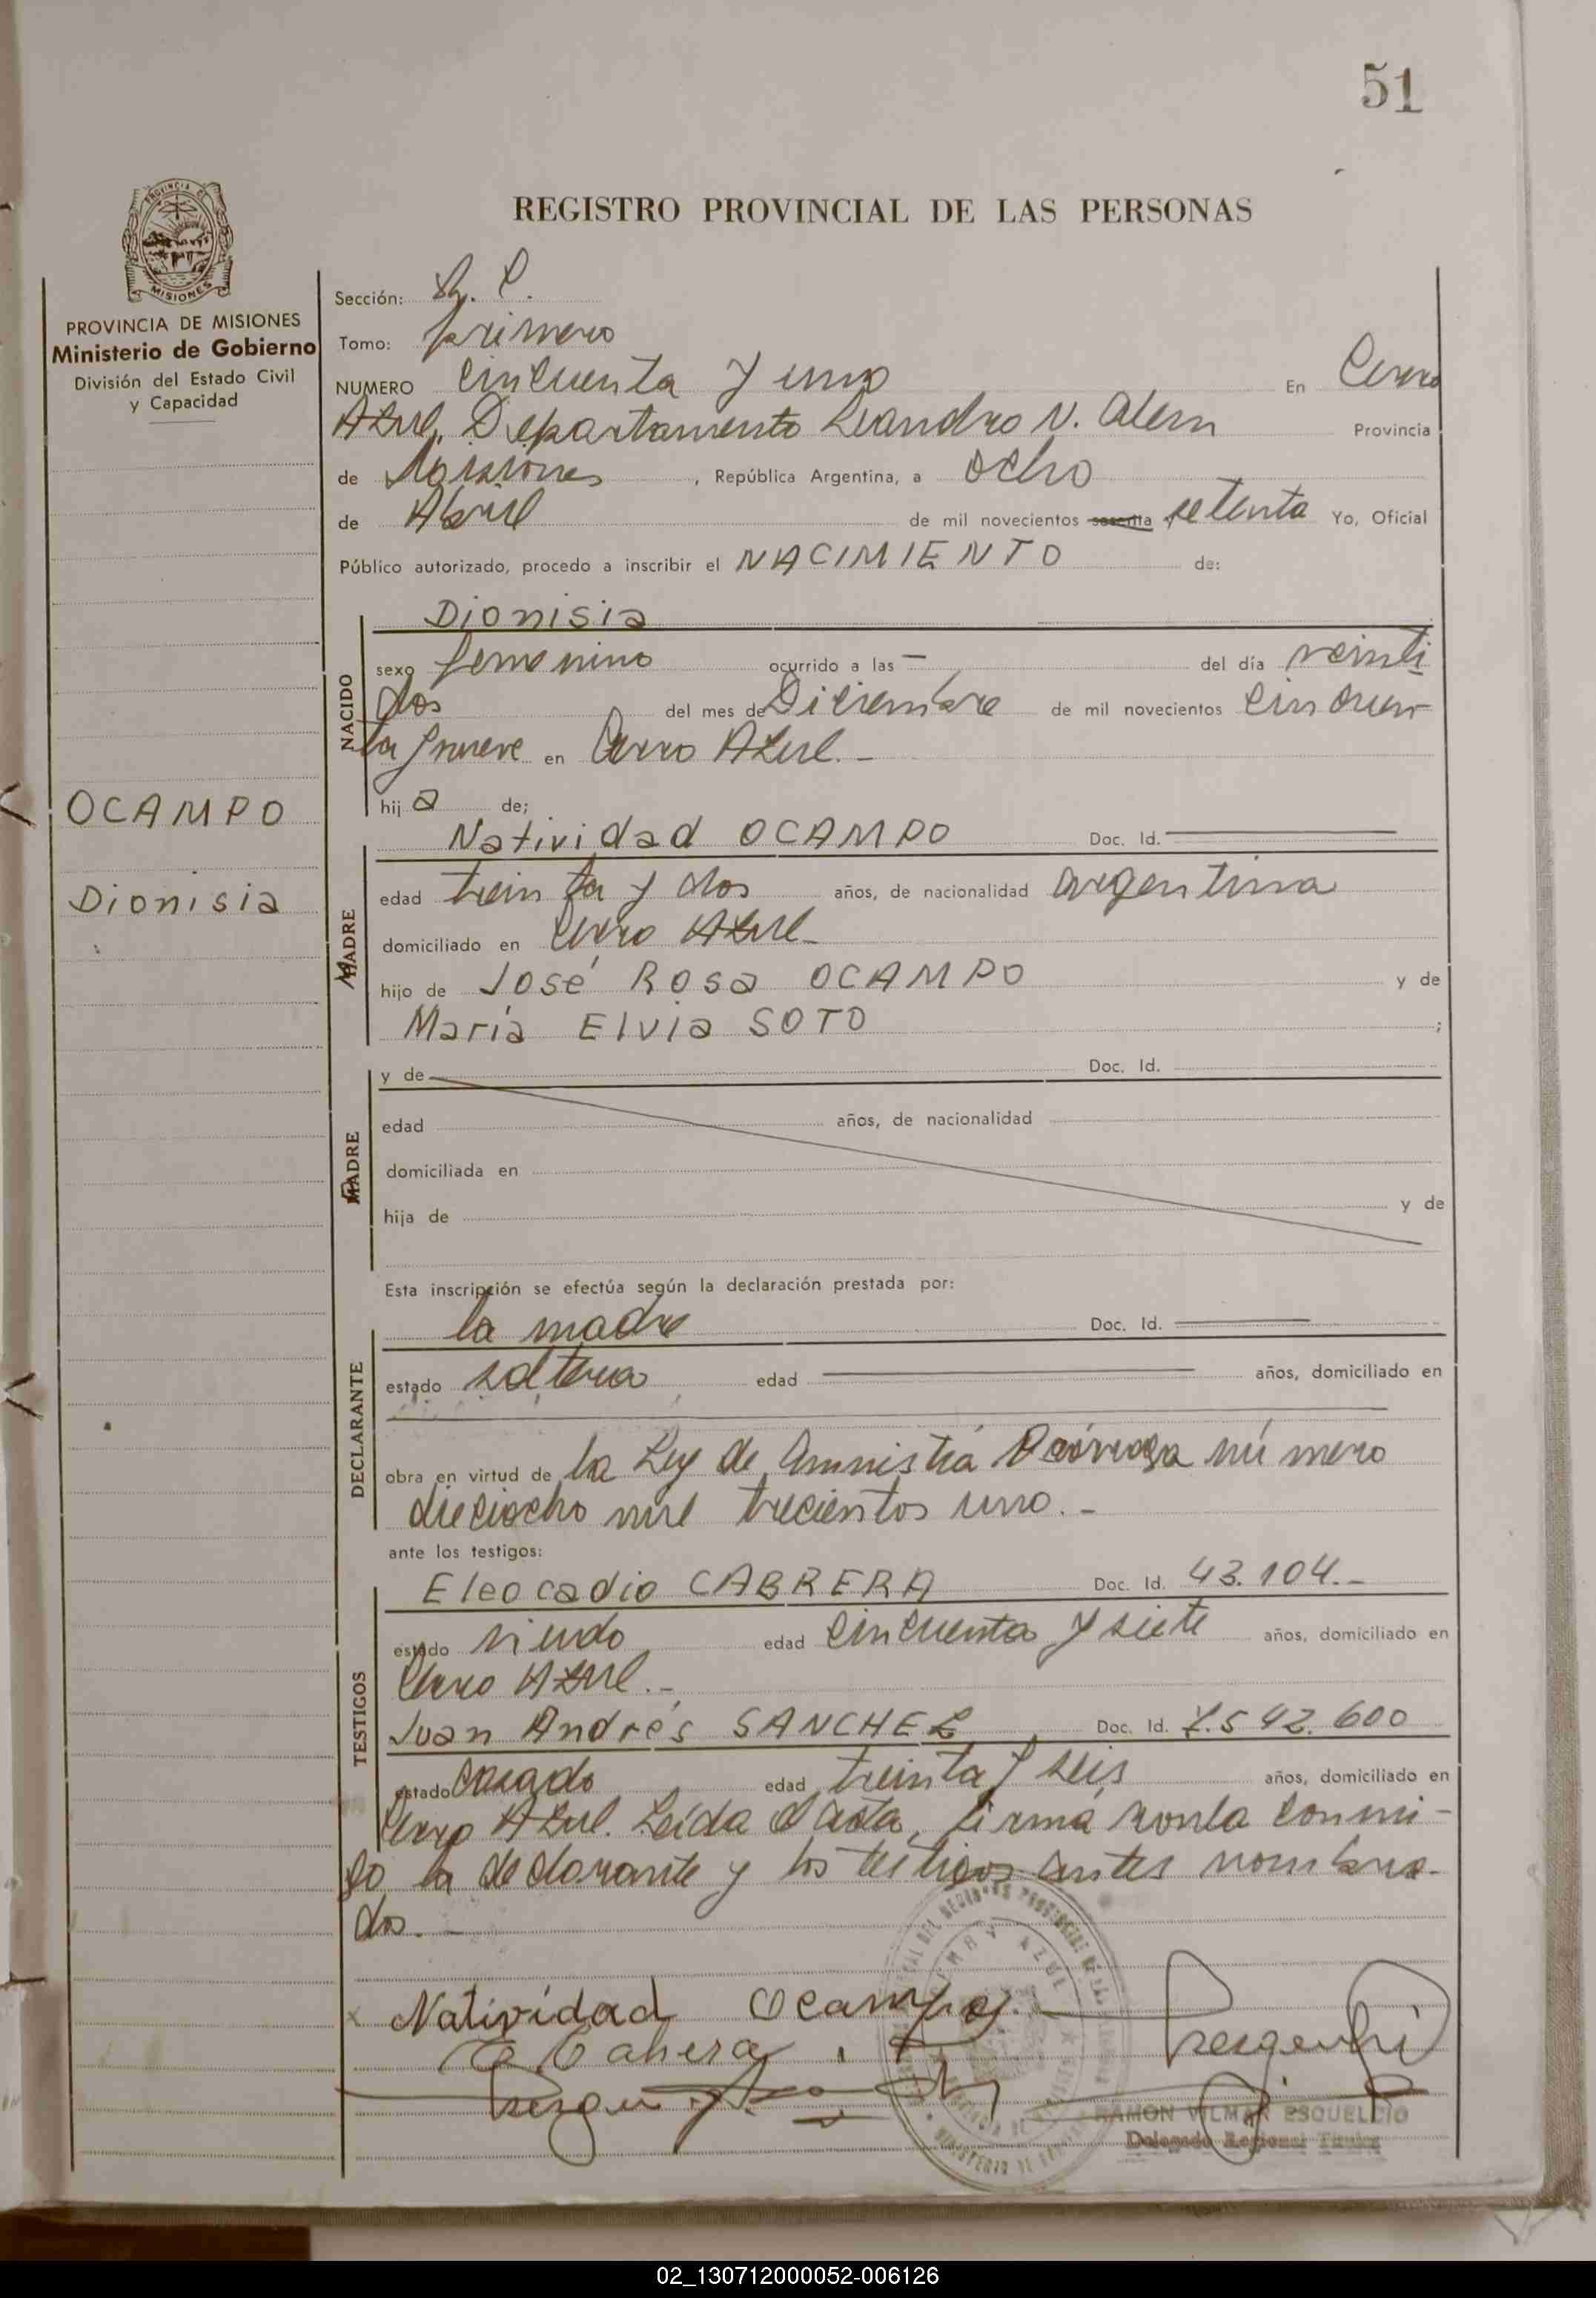 51
REGISTRO PROVINCIAL DE LAS PERSONAS
PROVINCIA DE MISIONES
Ministerio de Gobierno
División del Estado Civil
y Capacidad
OCAMPO
Dionisia
Sección:
Tomo: primero
NUMERO cincuenta y uno En Cerro
Azul, Departamento Leandro N. Alem Provincia
de Misiones, República Argentina, a ocho
de Abril de mil novecientos sesenta setenta Yo, Oficial
Público autorizado, procedo a inscribir el NACIMIENTO de:
NACIDO
Dionisia
sexo femenino ocurrido a las — del día veinti
dos del mes de Diciembre de mil novecientos cincuen
ta y nueve en Cerro Azul.-
hija de;
MADRE
Natividad OCAMPO Doc. Id.
edad treinta y dos años, de nacionalidad argentina
domiciliado en Cerro Azul-
hijo de José Rosa OCAMPO y de
María Elvia SOTO ;
PADRE
y de Doc. Id.
edad años, de nacionalidad
domiciliada en
hija de y de
Esta inscripción se efectúa según la declaración prestada por:
DECLARANTE
la madre Doc. Id.
estado soltera edad años, domiciliado en
obra en virtud de la Ley de Amnistía número
dieciocho mil trecientos uno.-
ante los testigos:
TESTIGOS
Eleocadio CABRERA Doc. Id. 43.104.-
estado viudo edad cincuenta y siete años, domiciliado en
Cerro Azul.-
Juan Andrés SANCHEZ Doc. Id. 7.542.600
estado casado edad treinta y seis años, domiciliado en
Cerro Azul. Leída el acta, firma conmi-
go la declarante y los testigos antes nombra-
dos.-
Natividad Ocampo
RAMON VILMAR ESQUELCIO
Delegado Regional
02_130712000052-006126